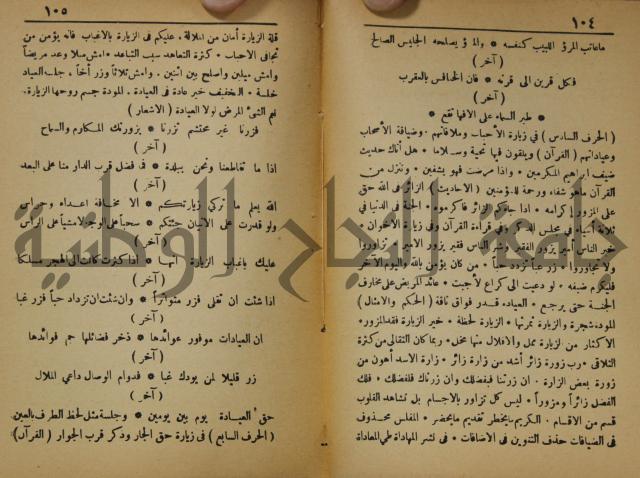 ١٠٤
ماعاتب المرؤ اللبيب كنفسه * والمرؤ يصلحه الجليس الصالح
( آخر )
فكل قرين الى قرنه * فان الخنافس بالعقرب
( آخر )
* طير السماء على الافها تقع *
( الحرف السادس ) فى زيارة الأحباب وملاقاتهم وضيافة الأصحاب
وعياداتهم ( القرآن ) ويلقون فيها تحية وسلاما * هل أتاك حديث
ضيف ابراهيم المكرمين * واذا مرضت فهو يشفين * وننزل من
القرآن ماهو شفاء ورحمة للمؤمنين ( الاحاديث ) الزائر فى الله حق
على المزور إكرامه * اذا جاءكم الزائر فاكرموه * الجنة فى الدنيا فى
ثلاثة أشياء فى مجلس الذكر وفى قراءة القرآن وفى زيارة الاخوان *
خير الناس أمير يزور الفقير وشر الناس فقير يزور الأمير * تزاوروا
ولا تجاوروا * زر غبا تزدد حبا * من كان يؤمن بالله واليوم الآخر
فليكرم ضيفه * لو دعيت الى كراع لأجبت * عائد المريض على مخارف
الجنة حتى يرجع * العيادة قدر فواق ناقة ( الحكم والامثال )
المودة شجرة والزيارة ثمرتها * الزيارة لحظة * خير الزيارة فقد المزور *
الاكثار من الزيارة ممل والاقلال منها مخل * ربما كان التقالى من كثرة
التلاقى * رب زورة زائر أشد من زارة زائر * زارة الاسد أهون من
زورة بعض الزارة * ان زرتنا فبفضلك وان زرناك فلفضلك * فلك
الفضل زائراً ومزوراً * ليس كل تزاور بالاجسام بل تشاهد القلوب
قسم من الاقسام * الكريم مايخطر تقديم مايحضر * المفلس محذوف
فى الضيافات حذف التنوين فى الاضافات * فى نشر المهاداة طى المعاداة
١٠٥
قلة الزيارة أمان من الملالة * عليكم فى الزيارة بالاغباب فانه يؤمن من
تجافى الاحباب * كثرة التعاهد سبب التباعد * امش ميلا وعد مريضاً
وامش ميلين واصلح بين اثنين * وامش ثلاثاً وزر أخاً * جلسة العياد
خلسة * التخفيف خير عادة فى العيادة * المودة جسم روحها الزيارة *
نعم الشئ المرض لولا العيادة ( الاشعار )
فزرنا غير محتشم تزرنا * بزورتك المكارم والسماح
( آخر )
اذا ما تقاطعنا ونحن ببلدة * فى فضل قرب الدار منا على البعد
( آخر )
الله يعلم ما تركى زيارتكم * الا مخافة اعداء وحراس
ولو قدرت على الاتيان جئتكم * سحباً على الوجه لا مشياً على الراس
( آخر )
عليك باغباب الزيارة انها * اذا كثرت كانت الى الهجر مسلكا
( آخر )
اذا شئت ان تقلى فزر متواتراً * وان شئت ان تزداد حباً فزر غبا
( آخر )
ان العيادات موفور عوائدها * ذخر فضائلها جم فوائدها
( آخر )
زر قليلا لمن يودك غبا * فدوام الوصال داعى الملال
( آخر )
حق العيادة يوم بين يومين * وجلسة مثل لحظ الطرف بالعين
( الحرف السابع ) فى زيارة حق الجار وذكر قرب الجوار ( القرآن )
جامعة النجاح الوطنية